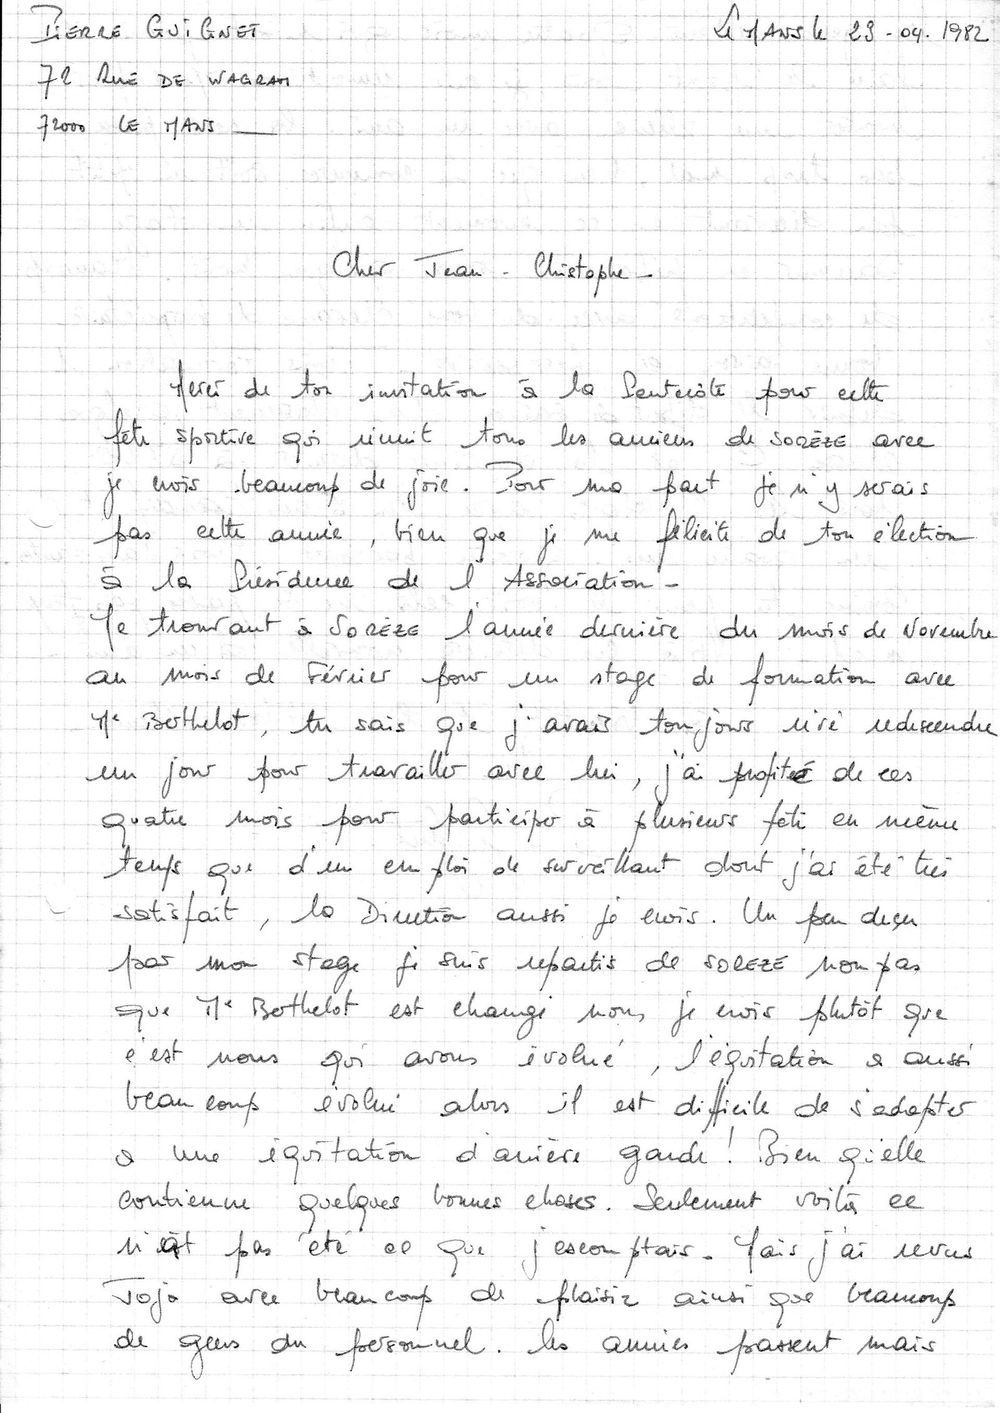 PIERRE GUIGNET
Le MANS le 23-04.1982
72 RUE DE WAGRAM
72000 LE MANS
Cher Jean-Christophe-
Merci de ton invitation à la Pentecôte pour cette
fête sportive qui réunit tous les anciens de SORÈZE avec
je crois beaucoup de joie. Pour ma part je n'y serais
pas cette année, bien que je me félicite de ton élection
à la Présidence de l'Association-
Me trouvant à SORÈZE l'année dernière du mois de Novembre
au mois de Février pour un stage de formation avec
Mr Berthelot, tu sais que j'avais toujours rêvé redescendre
un jour pour travailler avec lui, j'ai profité de ces
quatre mois pour participer à plusieurs fête en même
temps que d'un emploi de surveillant dont j'ai été très
satisfait, la Direction aussi je crois. Un peu déçu
par mon stage je suis repartis de SOREZE non pas
que Mr Berthelot est changé nous je crois plutôt que
c'est nous qui avons évolué, l'équitation a aussi
beaucoup évolué alors il est difficile de s'adapter
a une équitation d'arrière garde! Bien qu'elle
contienne quelques bonnes choses. Seulement voilà ce
n'est pas été ce que j'escomptais. Mais j'ai revus
Jojo avec beaucoup de plaisir ainsi que beaucoup
de gens du personnel. les années passent mais